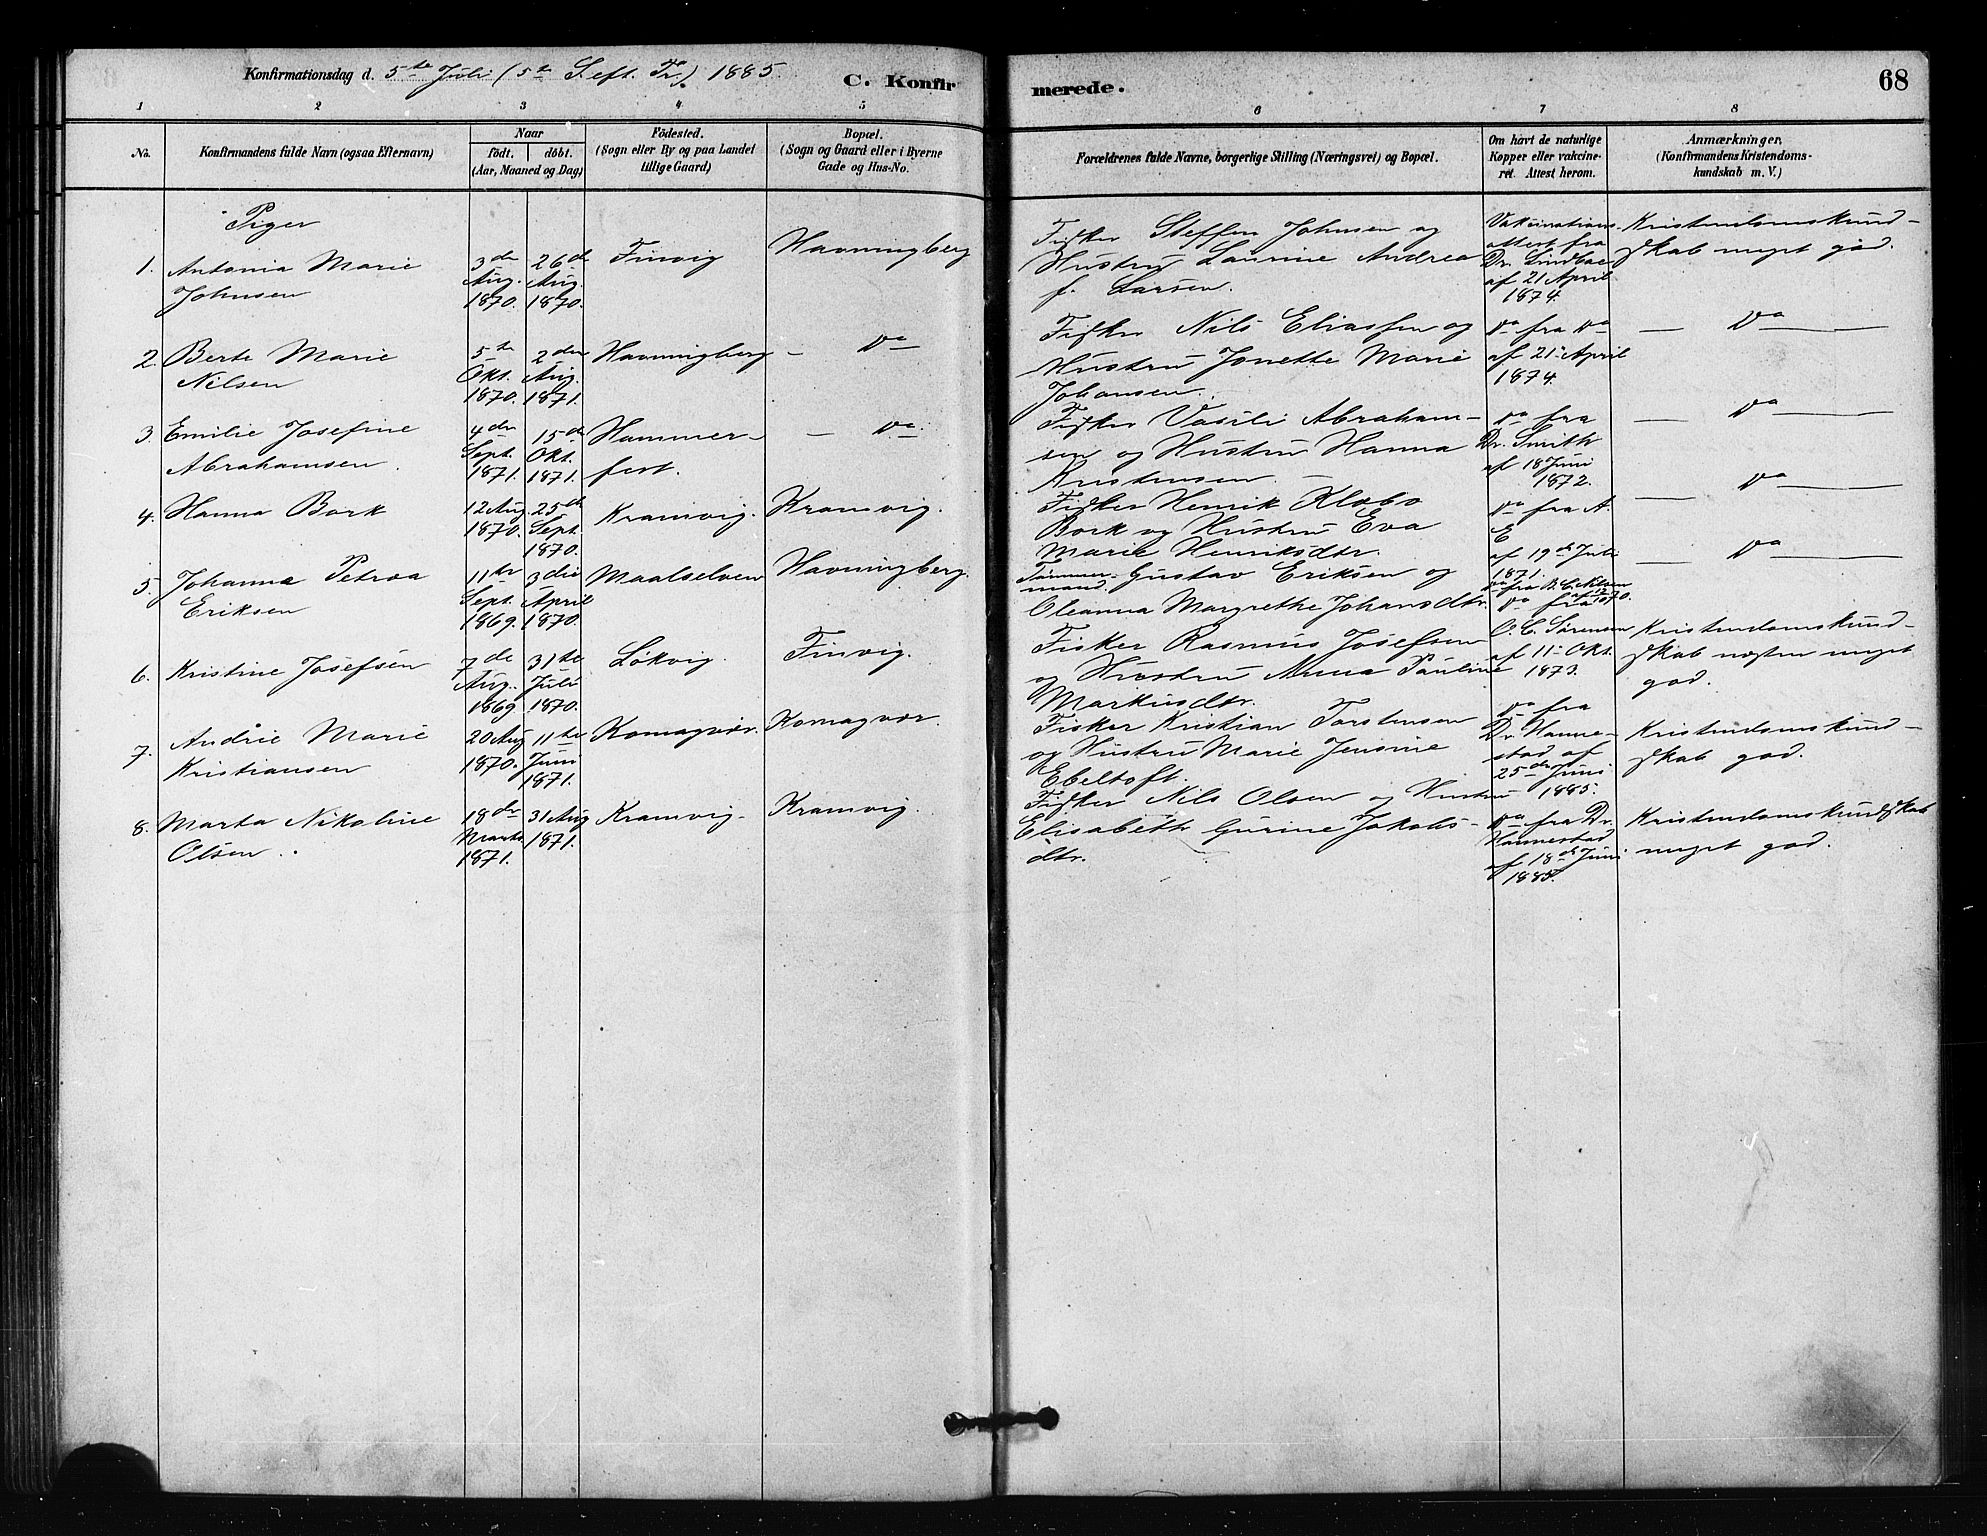 Konfirmationsdag d. 5te Juli (5te S. eft. Tr.) 1885.
C. Konfirmerede.
68
1 2 3 4 5 6 7 8
No.
Konfirmandens fulde Navn (ogsaa Efternavn)
Naar
født. døbt.
(Aar, Maaned og Dag)
Fødested.
(Sogn eller By og paa Landet
tillige Gaard)
Bopæl.
(Sogn og Gaard eller i Byerne
Gade og Hus-No.
Forældrenes fulde Navne, borgerlige Stilling (Næringsvei) og Bopæl.
Om havt de naturlige
Kopper eller vakcine-
ret. Attest herom.
Anmærkninger,
(Konfirmandens Kristendoms-
kundskab m. V.)
Piger
1. Antonia Marie
Johnsen
3de
Aug.
1870.
26de
Aug.
1870.
Finvig
Havningberg
Fisker Steffen Johnsen og
Hustru Laurine Andrea
f. Larsen.
Vakcinations-
attest fra
Dr. Lindboe
af 21 April
1874.
Kristendomskund-
skab meget god.
2. Berte Marie
Nilsen
5te
Okt.
1870.
2den
Aug.
1871.
Havningberg
— Do
Fisker Nils Eliassen og
Hustru Jonette Marie
Johansen.
Do fra Do
af 21 April
1874.
— Do —
3. Emilie Josefine
Abrahamsen.
4de
Sept.
1871.
15de
Okt.
1871.
Hammer-
fest.
— Do.
Fisker Vasili Abraham-
sen og Hustru Hanna
Kristensen.
Do fra
Dr. Smith
af 18 Juni
1872.
— Do —
4. Hanna Bork
12 Aug.
1870.
25de
Sept.
1870.
Kramvig.
Kramvig.
Fisker Henrik Klæbo
Bork og Hustru Eva
Marie Henriksdtr.
Do fra A.
E
af 19de Juli
1871.
— Do —
5. Johanna Petrea
Eriksen
11te
Sept.
1869.
3die
April
1870.
Maalselven
Havningberg.
Tømmer-
mand. Gustav Eriksen og
Oleanna Margrethe Johansdtr.
— Do —
6. Kristine Josefsen
7de
Aug.
1869.
31te
Juli
1870.
Løkvig.
Finvig.
Fisker Rasmus Josefsen
og Hustru Anna Pauline
Markusdtr.
Do fra
O. C. Sørensen
af 11 Okt.
1873.
Kristendomskund-
skab næsten meget
god.
7. Andrie Marie
Kristiansen
20 Aug
1870.
11te
Juni
1871.
Komagvær.
Komagvær.
Fisker Kristian Torstensen
og Hustru Marie Jensine
Ebeltoft.
Do fra
Dr. Hanne-
stad af
25de Juni
1885.
Kristendomskund-
skab god.
8. Marta Nikoline
Olsen.
18de
Marts
1871.
31 Aug
1871.
Kramvig.
Kramvig.
Fisker Nils Olsen og Hustru
Elisabeth Gurine Jakobs-
dtr.
Do fra Dr.
Hannestad
af 18de Juni
1885.
Kristendomskundskab
meget god.